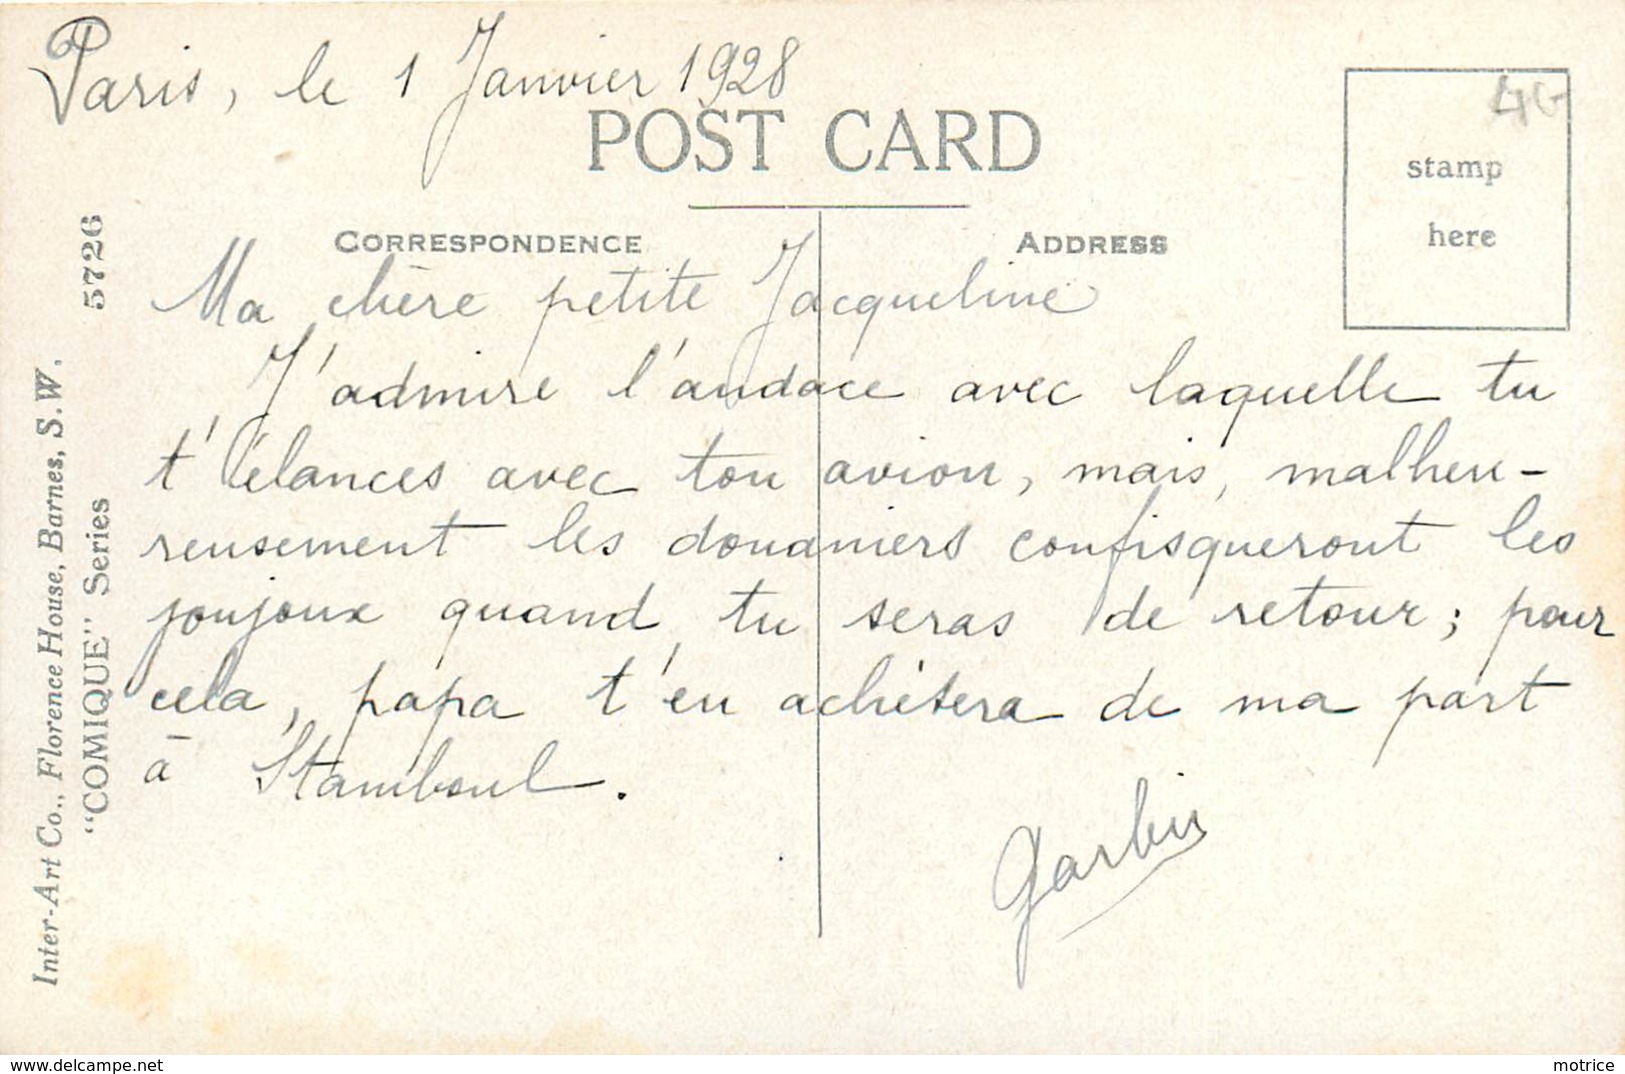 Paris, le 1 Janvier 1928
POST CARD
4G
stamp
here
CORRESPONDENCE
ADDRESS
Ma chère petite Jacqueline
J'admire l'audace avec laquelle tu
t'élances avec ton avion, mais, malheu-
reusement les douaniers confisqueront les
joujoux quand tu seras de retour; pour
cela, papa t'en achètera de ma part
à Stamboul.
Garbis
Inter-Art Co., Florence House, Barnes, S.W.
"COMIQUE" Series 5726
www.delcampe.net
motrice